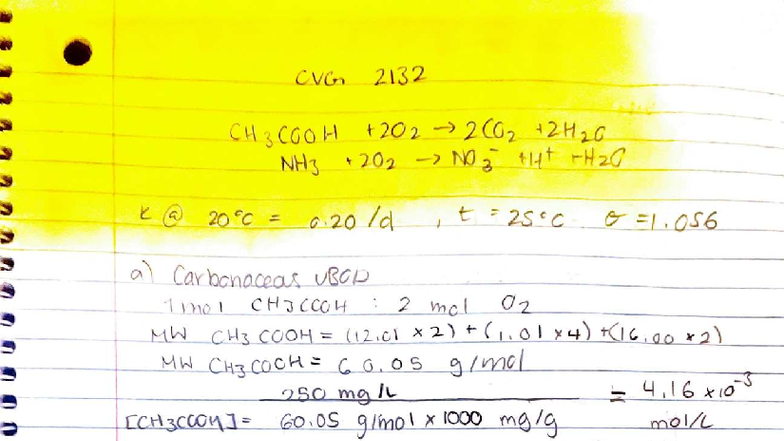 CVG 2132
CH3COOH + 2O2 → 2CO2 + 2H2O
NH3 + 2O2 → NO3⁻ + H⁺ + H2O
K @ 20°C = 0.20 /d , t = 25°C θ = 1.056
a) Carbonaceous UBOD
1 mol CH3COOH : 2 mol O2
MW CH3COOH = (12.01 × 2) + (1.01 × 4) + (16.00 × 2)
MW CH3COOH = 60.05 g/mol
250 mg/L = 4.16 × 10⁻³
[CH3COOH] = 60.05 g/mol × 1000 mg/g mol/L